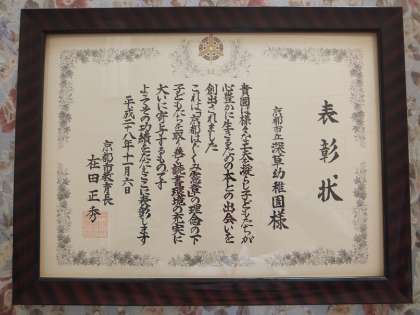 表彰状
京都市立深草幼稚園様
貴園は様々な工夫を凝らし子どもたちが
心豊かに生きるための本との出会いを
創出されました
これは「京都はぐくみ憲章」の理念の下
子どもたちを取り巻く読書環境の充実に
大いに寄与するものです
よってその功績をたたえここに表彰します
平成二十八年十一月六日
京都市教育長
在田正秀